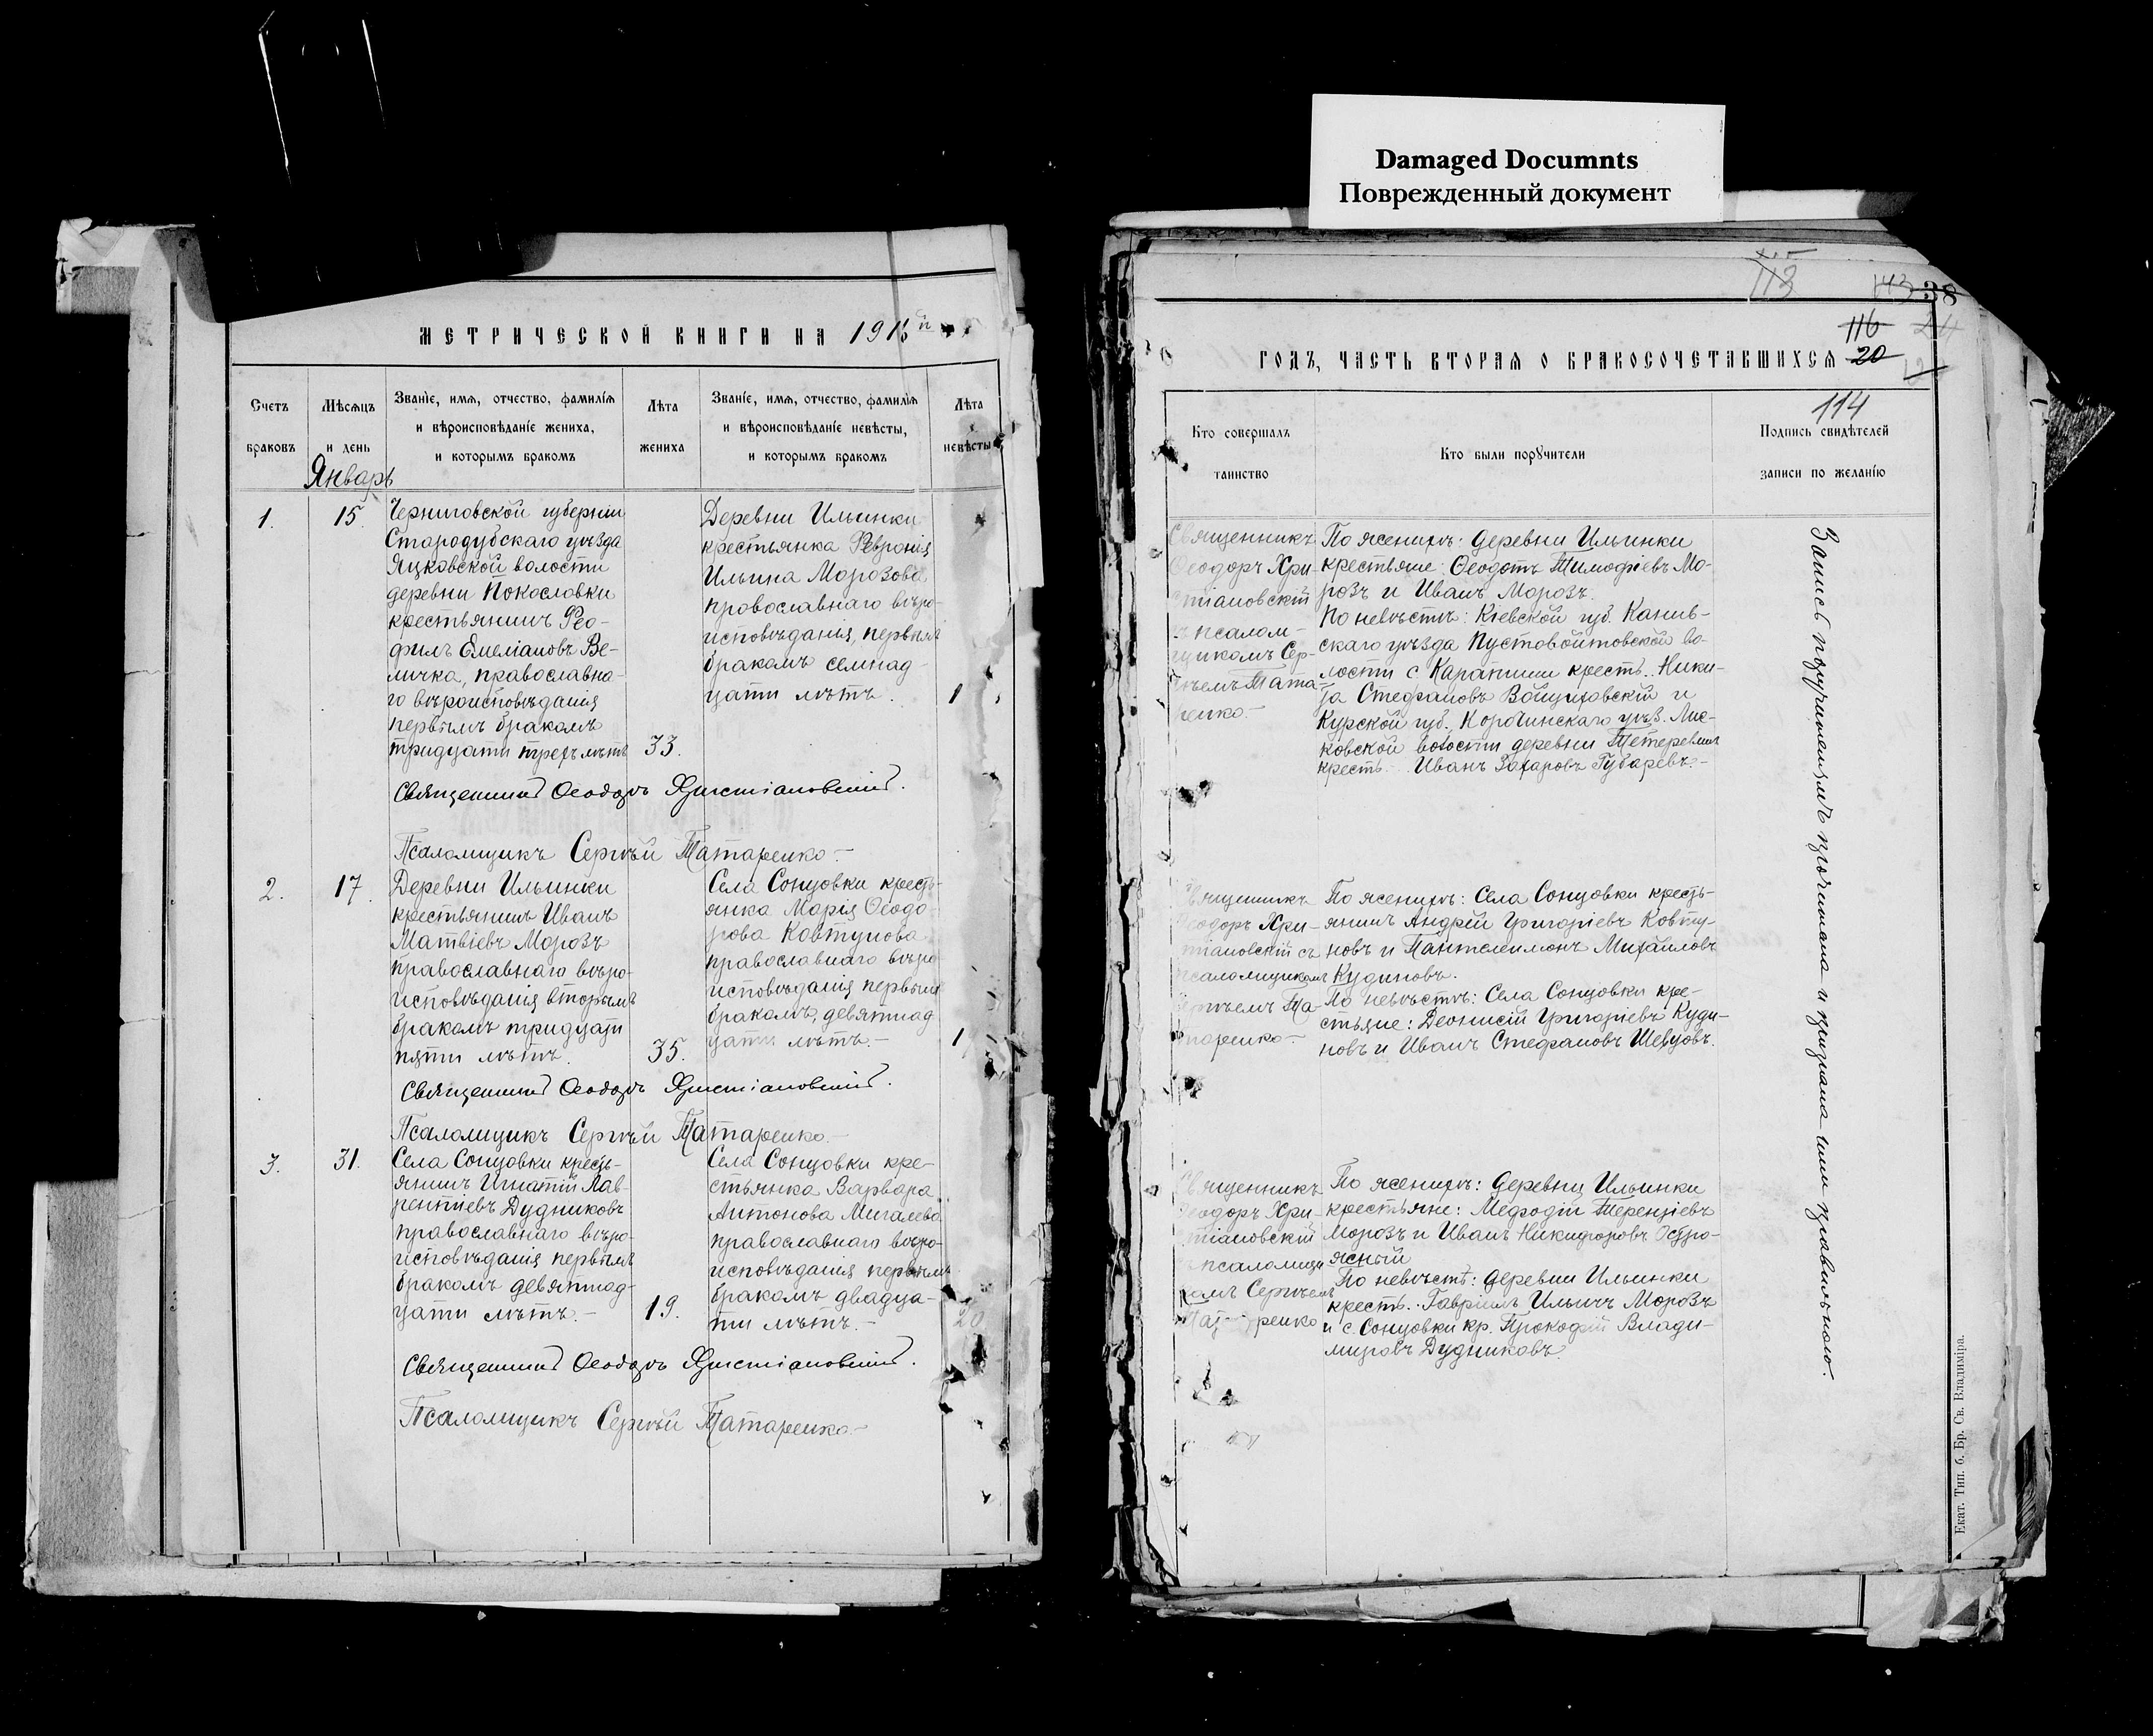 Damaged Documnts
Поврежденный документ
МЕТРИЧЕСКОЙ КНИГИ НА 1916й
Счетъ браковъ
Мѣсяцъ и день
Званіе, имя, отчество, фамилія и вѣроисповѣданіе жениха, и которымъ бракомъ
Лѣта жениха
Званіе, имя, отчество, фамилія и вѣроисповѣданіе невѣсты, и которымъ бракомъ
Лѣта невѣсты
Январь
1.
15.
Черниговской губерніи
Стародубскаго уѣзда
Яцковской волости
деревни Покословки
крестьянинъ Фео-
филъ Емеліановъ Ве-
личка, православна-
го вѣроисповѣданія
первымъ бракомъ
тридцати трехъ лѣтъ
33.
Деревни Ильинки
крестьянка Февронія
Ильина Морозова
провославнаго вѣро-
исповѣданія, первымъ
бракомъ семнад-
цати лѣтъ.
1
Священникъ Ѳеодоръ Христіановскій.
Псаломщикъ Сергѣй Татаренко.-
2.
17.
Деревни Ильинки
крестьянинъ Иванъ
Матвіевъ Морозъ
православнаго вѣро-
исповѣданія вторымъ
бракомъ тридцати
пяти лѣтъ.
35.
Села Сонцовки кресть-
янка Марія Ѳеодо-
рова Ковтунова
православнаго вѣро-
исповѣданія первымъ
бракомъ, девятнад-
цати лѣтъ.-
1
Священникъ Ѳеодоръ Христіановскій.
Псаломщикъ Сергѣй Татаренко.-
3.
31.
Села Сонцовки кресть-
янинъ Игнатій Лав-
рентіевъ Дудниковъ
православнаго вѣро-
исповѣданія первымъ
бракомъ девятнад-
цати лѣтъ.-
19.
Села Сонцовки кре-
стьянка Варвара
Антонова Мигалева
православнаго вѣро-
исповѣданія первымъ
бракомъ двадца-
ти лѣтъ.-
20
Священникъ Ѳеодоръ Христіановскій.
Псаломщикъ Сергѣй Татаренко.-
113
143
38
116
24
ГОДЪ, ЧАСТЬ ВТОРАЯ О БРАКОСОЧЕТАВШИХСЯ
20
114
Кто совершалъ таинство
Кто были поручители
Подпись свидѣтелей записи по желанію
Священникъ
Ѳеодоръ Хри-
стіановскій
псалом-
щикомъ Сер-
гѣемъ Тата-
ренко.-
По женихѣ: деревни Ильинки
крестьяне: Ѳеодотъ Тимофіевъ Мо-
розъ и Иванъ Морозъ.
По невѣстѣ: Кіевской губ. Канив-
скаго уѣзда Пустовойтовской во-
лости с. Карапиши кресть. Ники-
та Стефановъ Войциховскій и
Курской губ. Корочинскаго уѣз. Лис-
ковской волости деревни Тетеревин
кресть. Иванъ Захаровъ Губаревъ.-
Священникъ
Ѳеодоръ Хри-
стіановскій съ
псаломщикомъ
Сергѣемъ Та-
таренко-
По женихѣ: Села Сонцовки кресть-
янинъ Андрей Григоріевъ Ковту-
новъ и Пантелимонъ Михайловъ
Кудиновъ.
По невѣстѣ: Села Сонцовки кре-
стьяне: Деонисій Григоріевъ Куди-
новъ и Иванъ Стефановъ Шевцовъ.
Священникъ
Ѳеодоръ Хри-
стіановскій
псаломщи-
комъ Сергѣемъ
Татаренко
По женихѣ: Деревни Ильинки
крестьяне: Меѳодій Терентіевъ
Морозъ и Иванъ Никифоровъ Остро-
ясный
По невѣстѣ: деревни Ильинки
кресть. Гавріилъ Ильичъ Морозъ
и с. Сонцовки кр. Прокофій Влади-
мировъ Дудниковъ.
Запись поручителямъ прочитана и признана ими правильною.
Екат. Тип. б. Бр. Св. Владиміра.